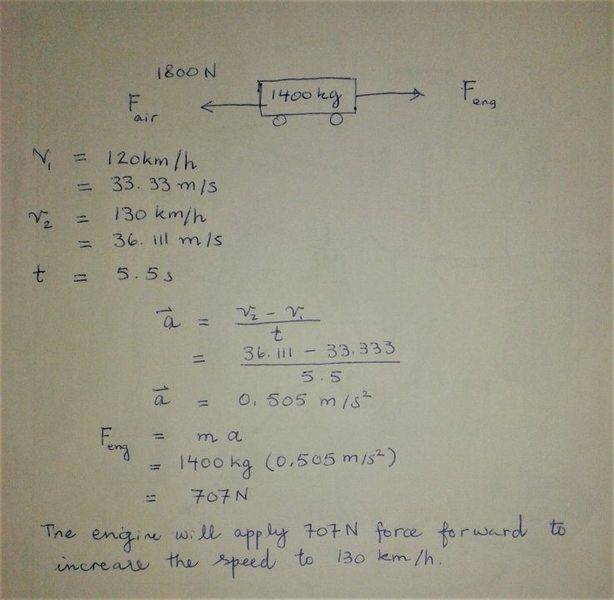 1800N
F air 1400kg F eng
V₁ = 120km/h
= 33.33 m/s
v₂ = 130 km/h
= 36.111 m/s
t = 5.5s
a⃗ = v₂ - v₁
t
= 36.111 - 33.333
5.5
a⃗ = 0.505 m/s²
F eng = m a
= 1400kg (0.505 m/s²)
= 707N
The engine will apply 707N force forward to
increase the speed to 130 km/h.